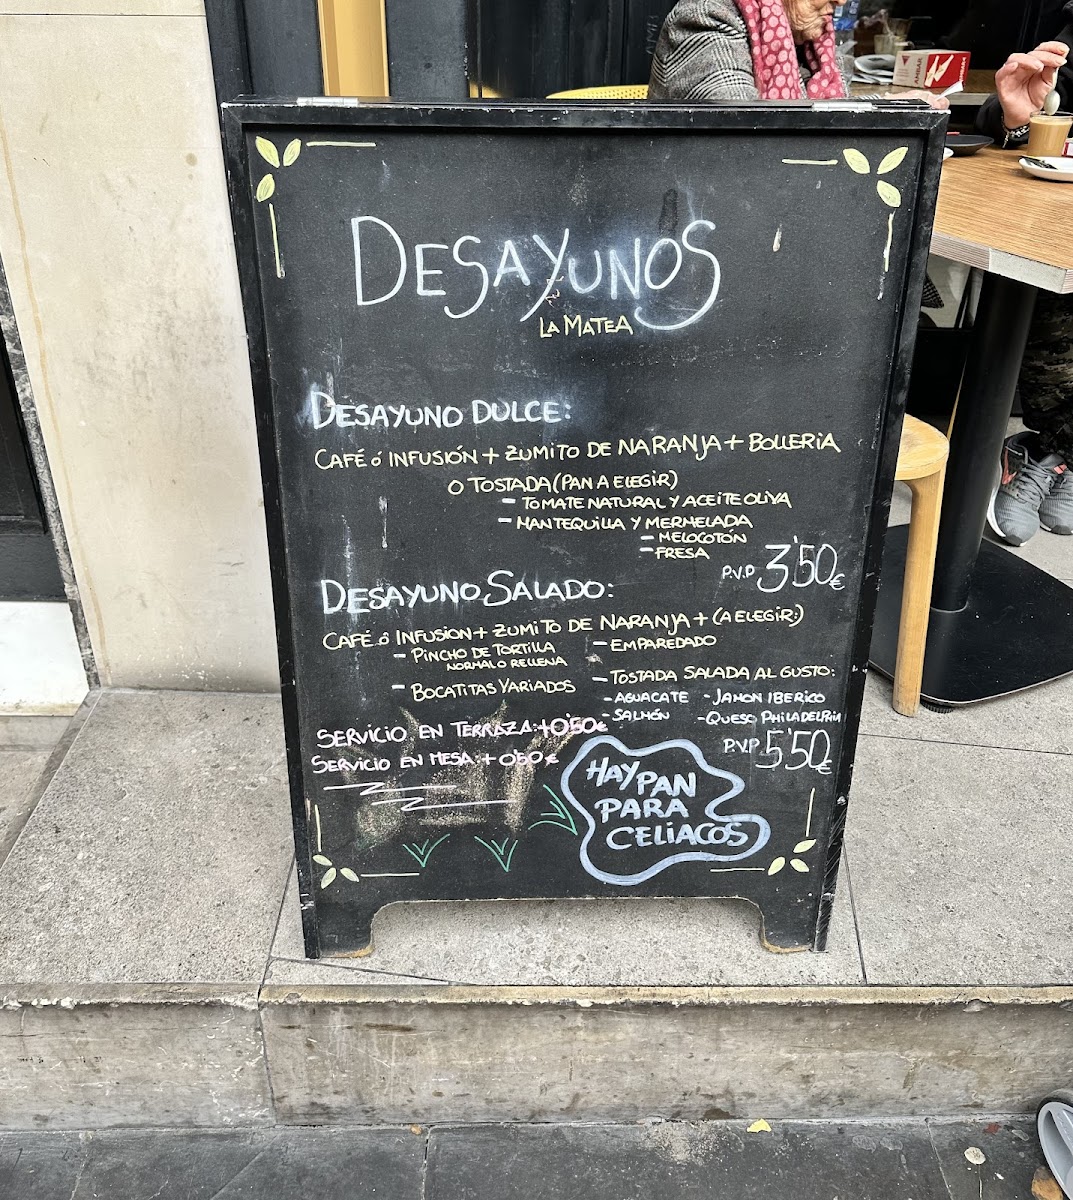 DESAYUNOS
LA MATEA
DESAYUNO DULCE:
CAFÉ ó INFUSIÓN + ZUMITO DE NARANJA + BOLLERIA
O TOSTADA (PAN A ELEGIR)
- TOMATE NATURAL Y ACEITE OLIVA
- MANTEQUILLA Y MERMELADA
- MELOCOTÓN
- FRESA
P.V.P 3'50€
DESAYUNO SALADO:
CAFÉ ó INFUSION + ZUMITO DE NARANJA + (A ELEGIR:)
- PINCHO DE TORTILLA
NORMAL O RELLENA
- BOCATITAS VARIADOS
- EMPAREDADO
- TOSTADA SALADA AL GUSTO:
- AGUACATE - JAMON IBERICO
- SALMÓN - QUESO PHILADELPHIA
P.V.P. 5'50€
SERVICIO EN TERRAZA: +0'50€
SERVICIO EN MESA: +0'50€
HAY PAN
PARA
CELIACOS
AMBAR